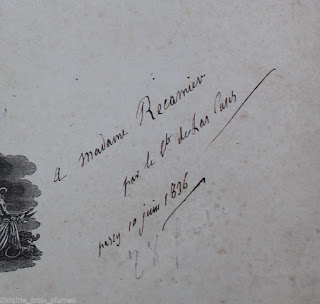 A madame Recamier
par le Cte de Las Cases
passy 10 juin 1836
librairie_trois_plumes